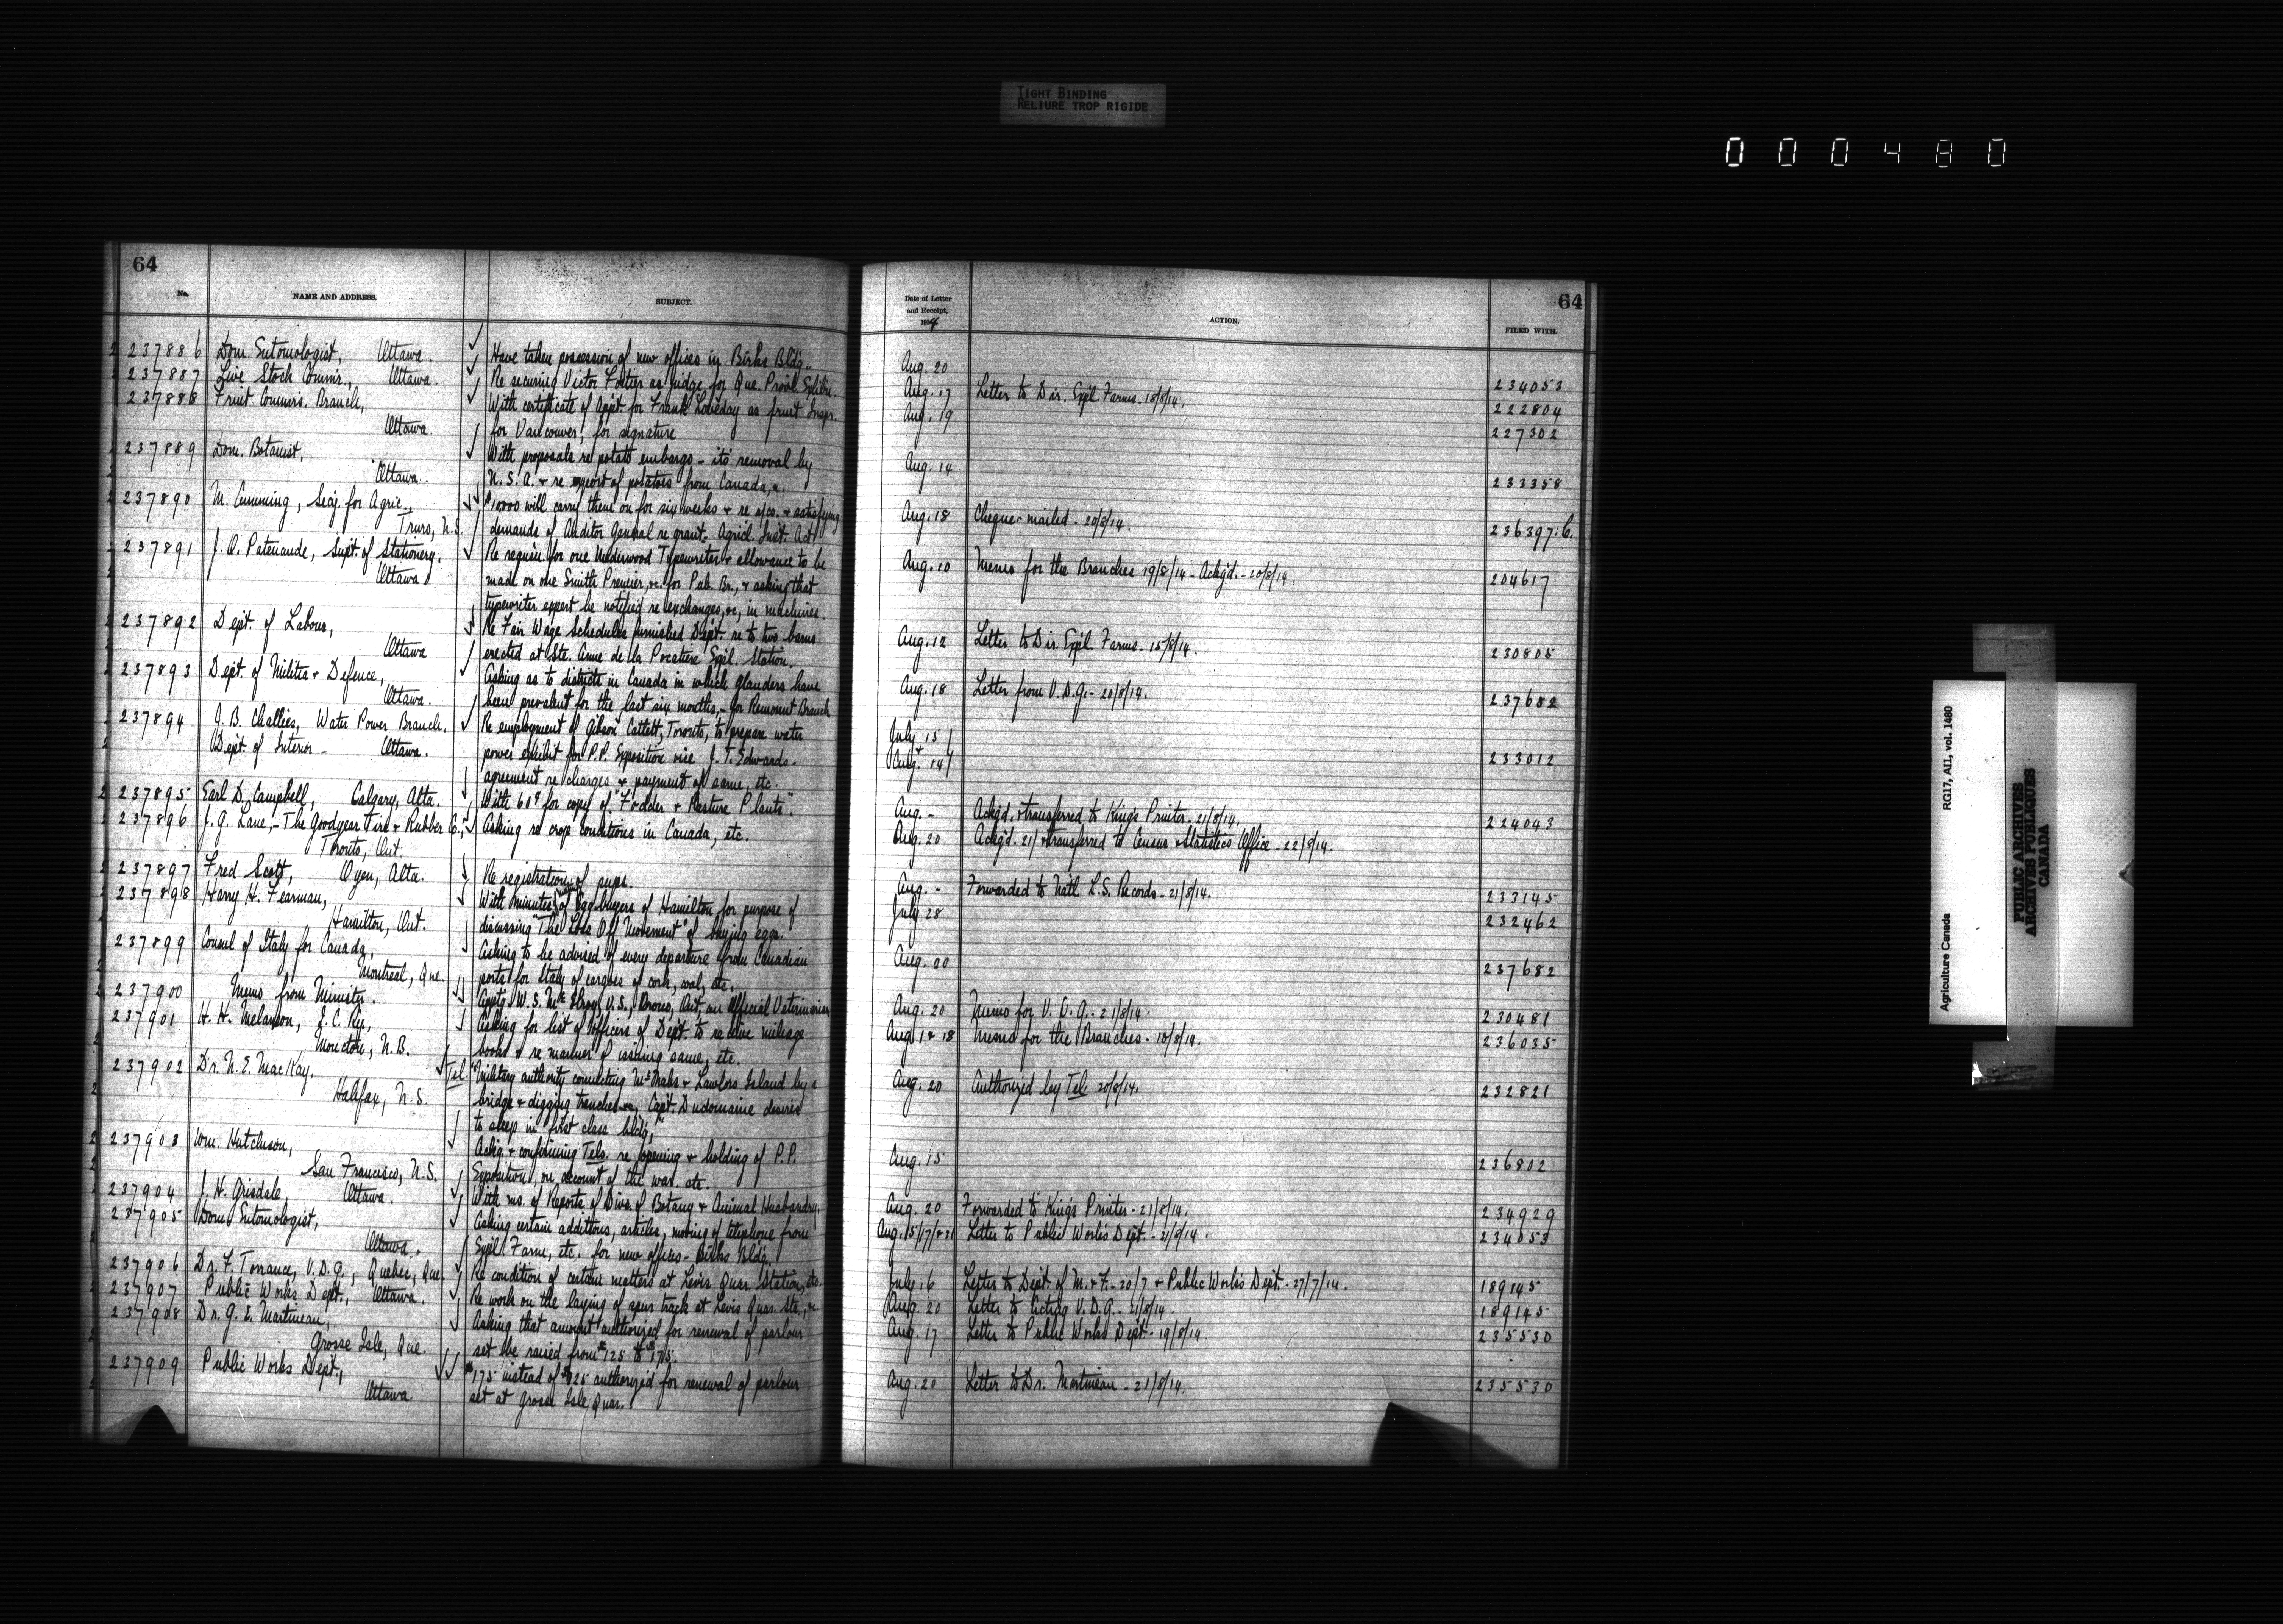 TIGHT BINDING
RELIURE TROP RIGIDE
000480
64
No.
NAME AND ADDRESS.
SUBJECT.
237886 Dom. Entomologist, Ottawa. Have taken possession of new offices in Birks Bldg.
237887 Live Stock Commr., Ottawa. Re securing Victor Fortier as judge for Que. Prov'l Exhibn.
237888 Fruit Commrs. Branch, With certificate of appt. for Frank Loveday as fruit Inspr.
Ottawa. for Vancouver, for signature
237889 Dom. Botanist, With proposals re potato embargo - its removal by
Ottawa. U.S.A. + re export of potatoes from Canada,
237890 M. Cumming, Secy. for Agric., $10000 will carry them on for six weeks + re a/cs. + satisfying
Truro, N.S. demands of Auditor General re grant. Agricl. Inst. Act
237891 J. O. Patenaude, Supt. of Stationery, Re requin. for one Underwood Typewriter + allowance to be
Ottawa. made on one Smith Premier, &c. for Pub. Br., + asking that
typewriter expert be notified re exchanges, &c, in machines.
237892 Dept. of Labour, Re Fair Wage Schedules furnished Dept. re to two barns
Ottawa erected at Ste. Anne de la Pocatiere Expl. Station.
237893 Dept. of Militia + Defence, Asking as to districts in Canada in which glanders have
Ottawa. been prevalent for the last six months, - for Remount Branch
237894 J. B. Challies, Water Power Branch, Re employment of Gibson Catlett, Toronto, to prepare water
Dept. of Interior - Ottawa. power exhibit for P.P. Exposition vice J. T. Edwards -
agreement re charges + payment of same, etc.
237895 Earl D. Campbell, Calgary, Alta. With 60¢ for copy of "Fodder + Pasture Plants".
237896 J. G. Lane, - The Goodyear Tire + Rubber Co., Asking re crop conditions in Canada, etc.
Toronto, Ont.
237897 Fred Scott, Oyen, Alta. Re registration of pups.
237898 Harry H. Fearman, With minutes of egg-buyers of Hamilton for purpose of
Hamilton, Ont. discussing "The Loss Off Movement" of buying eggs.
237899 Consul of Italy for Canada, Asking to be advised of every departure from Canadian
Montreal, Que. ports for Italy of cargoes of cork, coal, etc.
237900 Memo from Minister. Apptg. W. S. McElroy, V.S., Ont. an Official Veterinarian
237901 H. H. Melanson, I.C. Ry, Asking for list of officers of Dept. to receive mileage
Moncton, N.B. books + re manner of issuing same, etc.
237902 Dr. N. E. MacKay, Tel. "Military authority connecting McNabs + Lawlors Island by a
Halifax, N.S. bridge + digging trenches &c, Capt. Dudomaine desires
to sleep in first class bldg."
237903 Wm. Hutchison, Ackg. + confirming Tels. re opening + holding of P.P.
San Francisco, U.S. Exposition, on account of the war. etc.
237904 J. H. Grisdale, Ottawa. With ms. of Reports of Divs. of Botany + Animal Husbandry.
237905 Dom. Entomologist, Asking certain additions, articles, moving of telephone from
Ottawa. Expl. Farm, etc. for new offices - Birks Bldg.
237906 Dr. F. Torrance, V.D.G., Quebec, Que. Re condition of certain matters at Levis Quar. Station, etc.
237907 Public Works Dept., Ottawa. Re work on the laying of spur track at Levis Quar. Sta., &c.
237908 Dr. G. E. Martineau, Asking that amount authorized for renewal of parlour
Grosse Isle, Que. set be raised from $125 to $175.
237909 Public Works Dept., $175 instead of $125 authorized for renewal of parlour
Ottawa. set at Grosse Isle Quar.
64
Date of Letter
and Receipt,
1914
ACTION.
FILED WITH.
Aug. 20 234053
Aug. 17 Letter to Dir. Expl. Farms - 18/8/14. 222804
Aug. 19 227302
Aug. 14 233358
Aug. 18 Cheque mailed - 20/8/14. 236397.C.
Aug. 10 Memo for the Branches 19/8/14 - Ackg'd. - 20/8/14. 204617
Aug. 12 Letter to Dir. Expl. Farms - 15/8/14. 230805
Aug. 18 Letter from V.D.G. - 20/8/14. 237682
July 15
+
Aug. 14 233012
Aug. - Ackg'd. + transferred to King's Printer - 21/8/14. 224043
Aug. 20 Ackg'd. 21/ + transferred to Census + Statistics Office - 22/8/14.
Aug. - Forwarded to Nat'l L.S. Records - 21/8/14. 233145
July 28 232462
Aug. 20 237682
Aug. 20 Memo for V.D.G. - 21/8/14. 230481
Aug. 1 + 18 Memo for the Branches - 18/8/14. 236035
Aug. 20 Authorized by Tel. 20/8/14. 232821
Aug. 15 236802
Aug. 20 Forwarded to King's Printer - 21/8/14. 234929
Aug. 15/17/+21 Letter to Public Works Dept. - 21/8/14. 234053
July 16 Letter to Dept. of M. + F. - 20/7 + Public Works Dept. - 27/7/14. 189145
Aug. 20 Letter to Acting V.D.G. - 21/8/14. 189145
Aug. 17 Letter to Public Works Dept. - 19/8/14. 235530
Aug. 20 Letter to Dr. Martineau - 21/8/14. 235530
Agriculture Canada RG17, A11, vol. 1480
PUBLIC ARCHIVES
ARCHIVES PUBLIQUES
CANADA